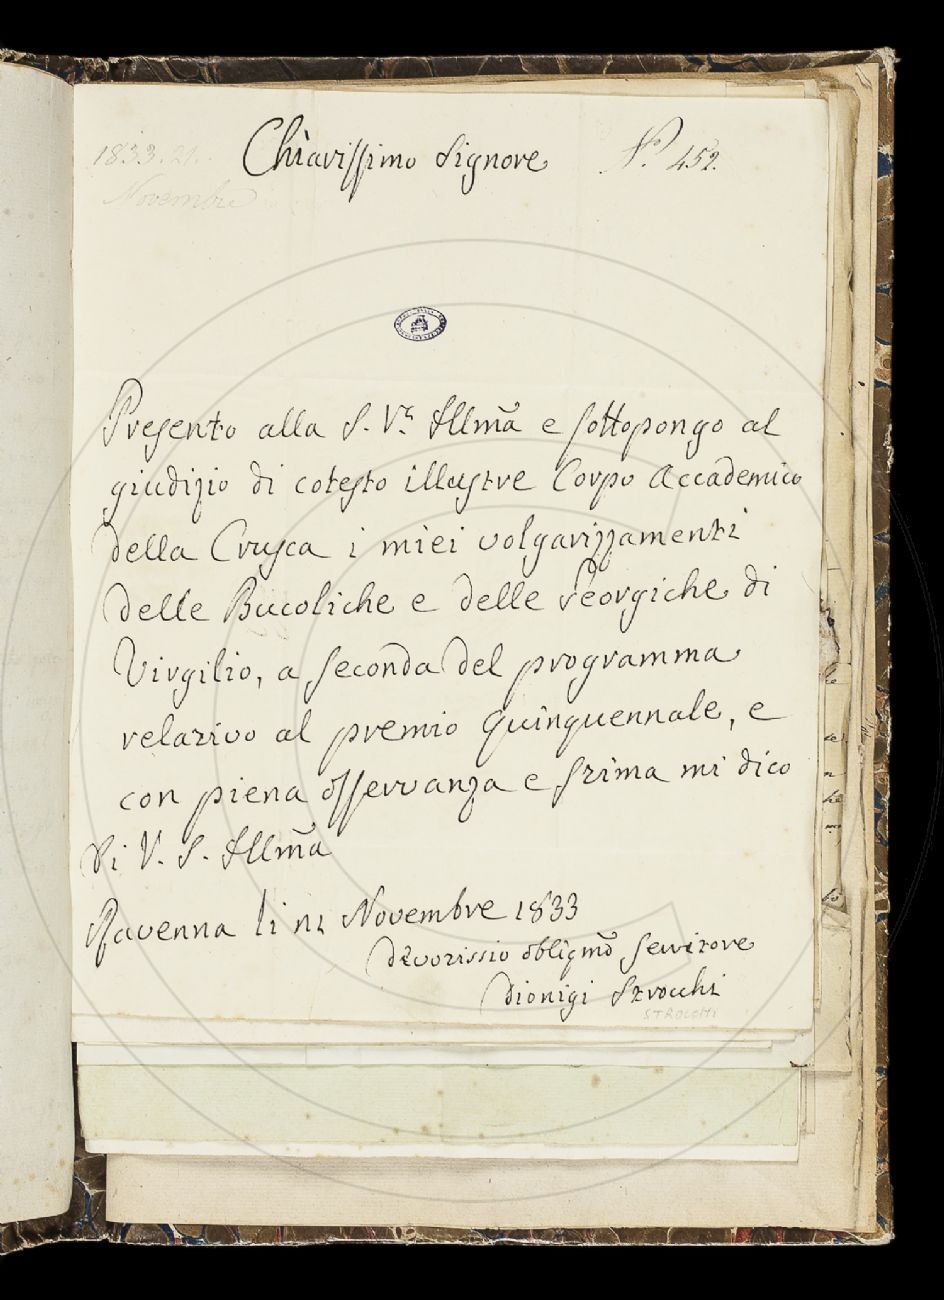 1833. 21.
Novembre
Chiarissimo Signore
N.º 452.
Presento alla S. V.ª Illm̃a e sottopongo al
giudizio di cotesto illustre Corpo Accademico
della Crusca i miei volgarizzamenti
delle Bucoliche e delle Georgiche di
Virgilio, a seconda del programma
relativo al premio quinquennale, e
con piena osservanza e stima mi dico
Di V. S. Illm̃a
Ravenna li Novembre 1833
Devotissio obbligm̃o Servitore
Dionigi Strocchi
STROCCHI